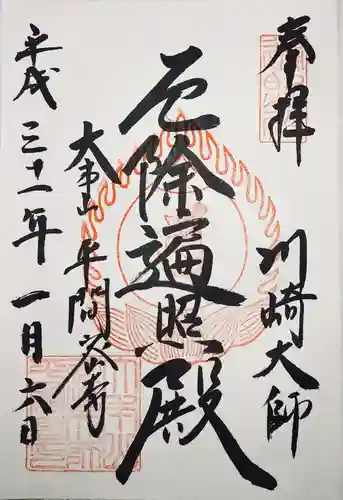 奉拝
川崎大師
厄除遍照殿
大本山 平間寺
平成三十一年一月六日